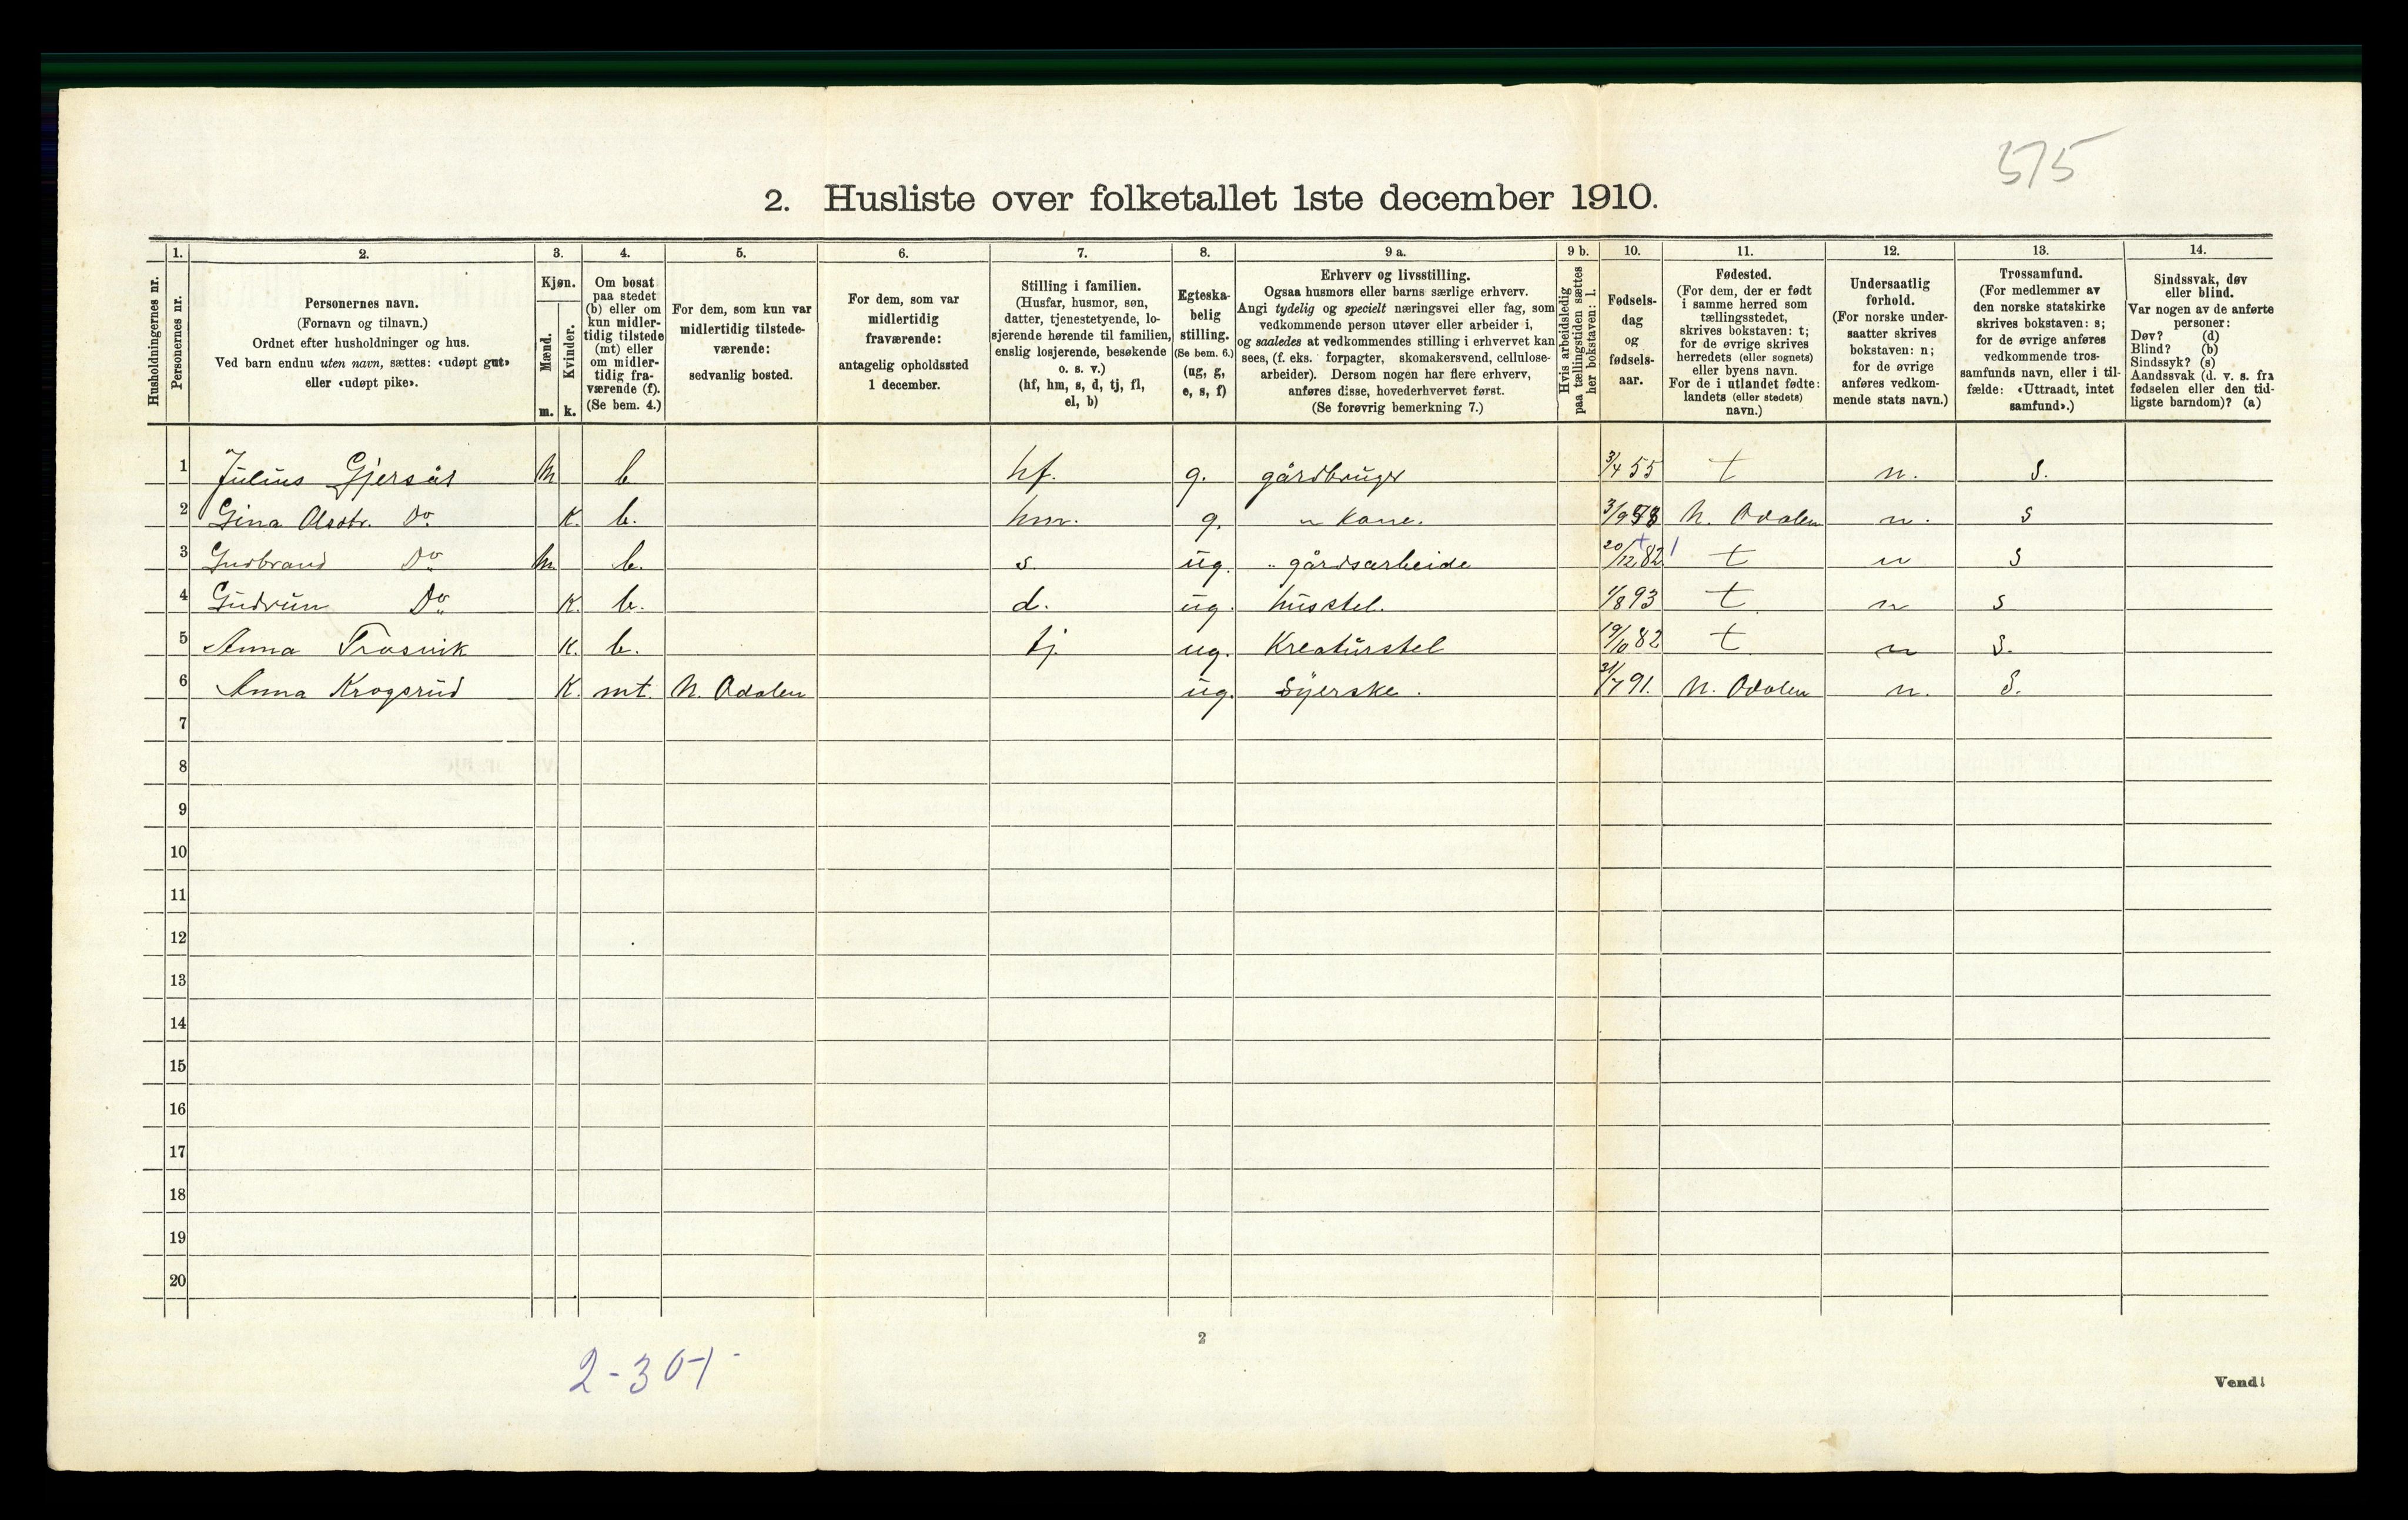 575
2. Husliste over folketallet 1ste december 1910.
Husholdningernes nr.
1. Personernes nr.
2. Personernes navn.
(Fornavn og tilnavn.)
Ordnet efter husholdninger og hus.
Ved barn endnu uten navn, sættes: «udøpt gut»
eller «udøpt pike».
3. Kjøn.
Mænd. m.
Kvinder. k.
4. Om bosat
paa stedet
(b) eller om
kun midler-
tidig tilstede
(mt) eller
om midler-
tidig fra-
værende (f).
(Se bem. 4.)
5. For dem, som kun var
midlertidig tilstede-
værende:
sedvanlig bosted.
6. For dem, som var
midlertidig
fraværende:
antagelig opholdssted
1 december.
7. Stilling i familien.
(Husfar, husmor, søn,
datter, tjenestetyende, lo-
sjerende hørende til familien,
enslig losjerende, besøkende
o. s. v.)
(hf, hm, s, d, tj, fl,
el, b)
8. Egteska-
belig
stilling.
(Se bem. 6.)
(ug, g,
e, s, f)
9 a. Erhverv og livsstilling.
Ogsaa husmors eller barns særlige erhverv.
Angi tydelig og specielt næringsvei eller fag, som
vedkommende person utøver eller arbeider i,
og saaledes at vedkommendes stilling i erhvervet kan
sees, (f. eks. forpagter, skomakersvend, cellulose-
arbeider). Dersom nogen har flere erhverv,
anføres disse, hovederhvervet først.
(Se forøvrig bemerkning 7.)
9 b. Hvis arbeidsledig
paa tællingstiden sættes
her bokstaven: l.
10. Fødsels-
dag
og
fødsels-
aar.
11. Fødested.
(For dem, der er født
i samme herred som
tællingsstedet,
skrives bokstaven: t;
for de øvrige skrives
herredets (eller sognets)
eller byens navn.
For de i utlandet fødte:
landets (eller stedets)
navn.)
12. Undersaatlig
forhold.
(For norske under-
saatter skrives
bokstaven: n;
for de øvrige
anføres vedkom-
mende stats navn.)
13. Trossamfund.
(For medlemmer av
den norske statskirke
skrives bokstaven: s;
for de øvrige anføres
vedkommende tros-
samfunds navn, eller i til-
fælde: «Uttraadt, intet
samfund».)
14. Sindssvak, døv
eller blind.
Var nogen av de anførte
personer:
Døv? (d)
Blind? (b)
Sindssyk? (s)
Aandssvak (d. v. s. fra
fødselen eller den tid-
ligste barndom)? (a)
1 Julius Gjersås m b hf. g. gårdbruger 3/4 55 t n. s.
2 Gina Olsdtr. Do K. b. hm. g. " Kone. 3/9 N. Odalen n. s
3 Gudbrand Do m. b. s. ug. " gårdsarbeide 20/12 82 t n s
4 Gudrun Do K. b. d. ug. husstel. 1/8 93 t n s
5 Anna Trosvik K. b. tj. ug. Kreaturstel 19/10 82 t n s.
6 Anna Krogsrud K. mt. N. Odalen ug. Syerske. 31/7 91. N. Odalen n. s.
7
8
9
10
11
12
13
14
15
16
17
18
19
20
2
Vend!